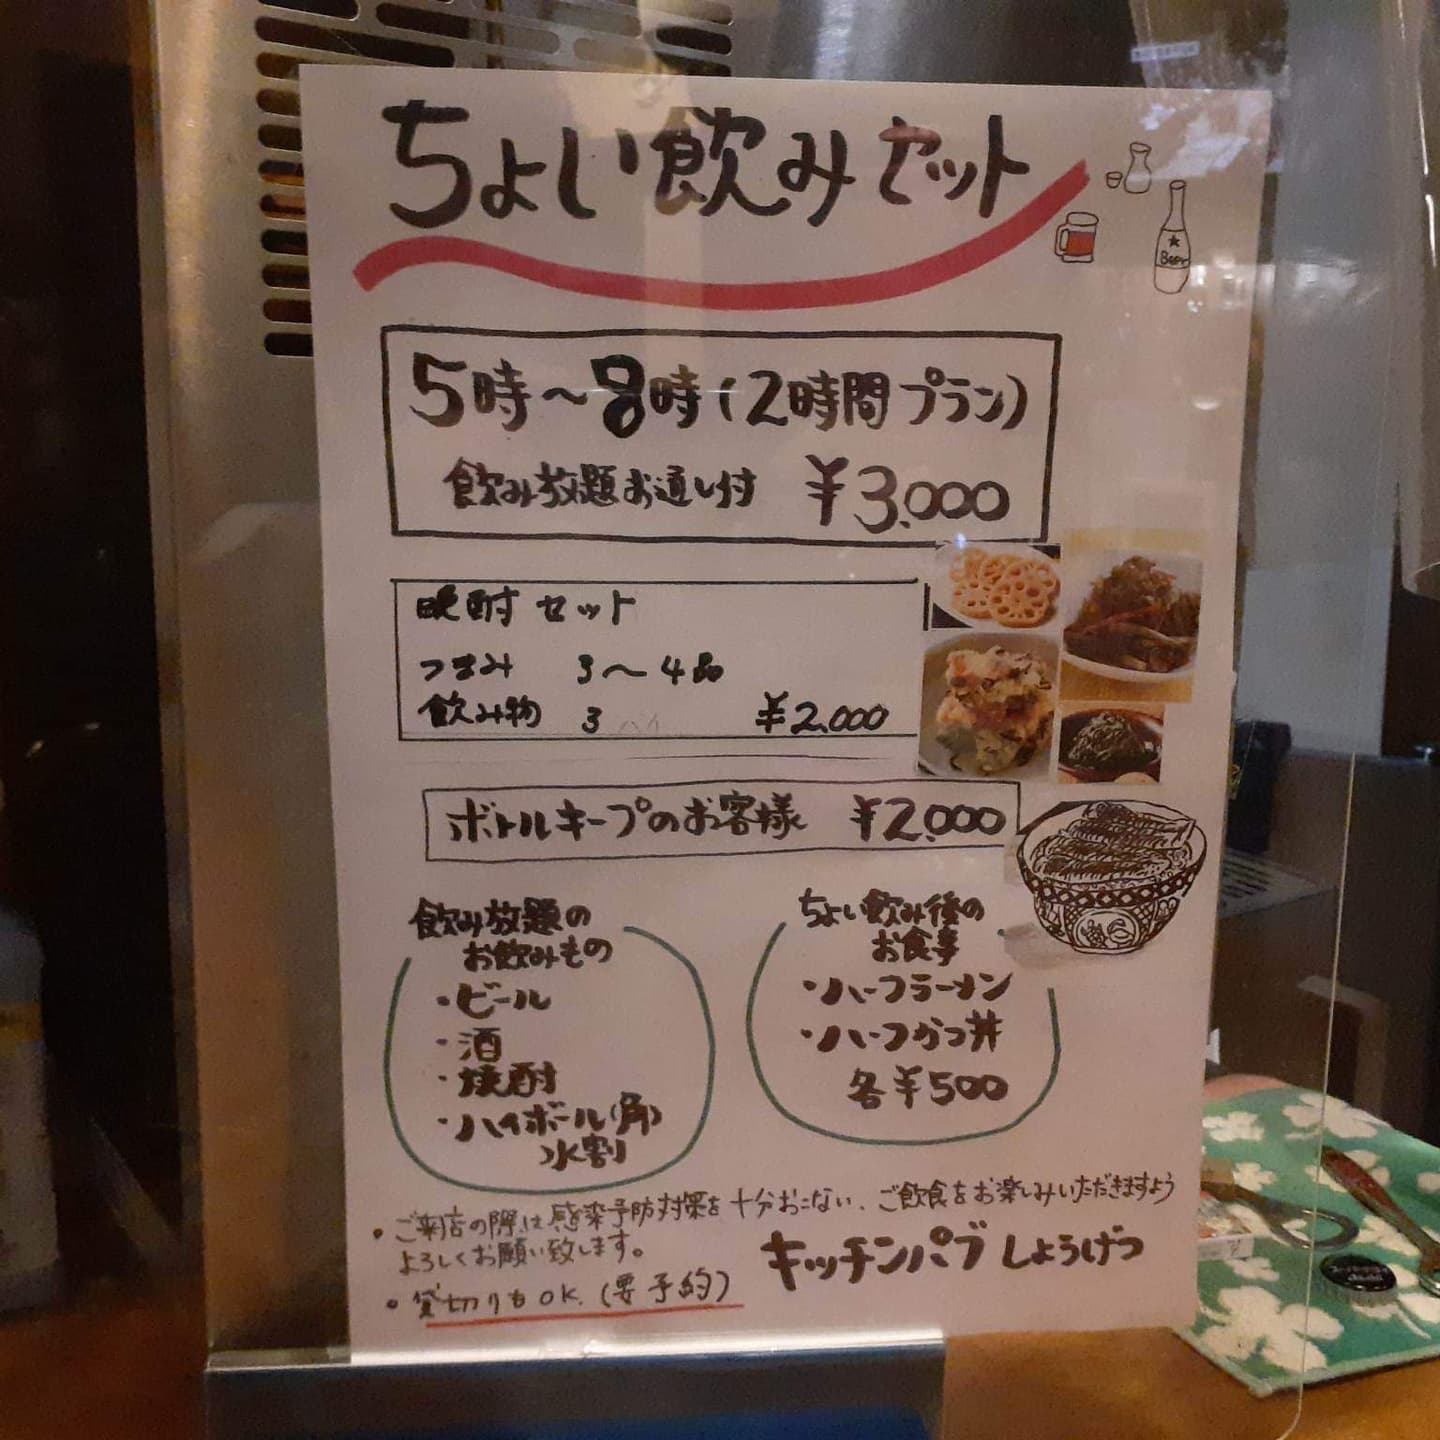 ちょい飲みセット
Beer
5時～8時(2時間プラン)
飲み放題お通し付 ¥3,000
晩酌セット
つまみ 3～4品
飲み物 3バイ ¥2,000
ボトルキープのお客様 ¥2,000
飲み放題の
お飲みもの
・ビール
・酒
・焼酎
・ハイボール(角)
水割
ちょい飲み後の
お食事
・ハーフラーメン
・ハーフかつ丼
各¥500
・ご来店の際は感染予防対策を十分おこない、ご飲食をお楽しみいただきますよう
よろしくお願い致します。
・貸切りもOK.(要予約)
キッチンパブ しょうげつ